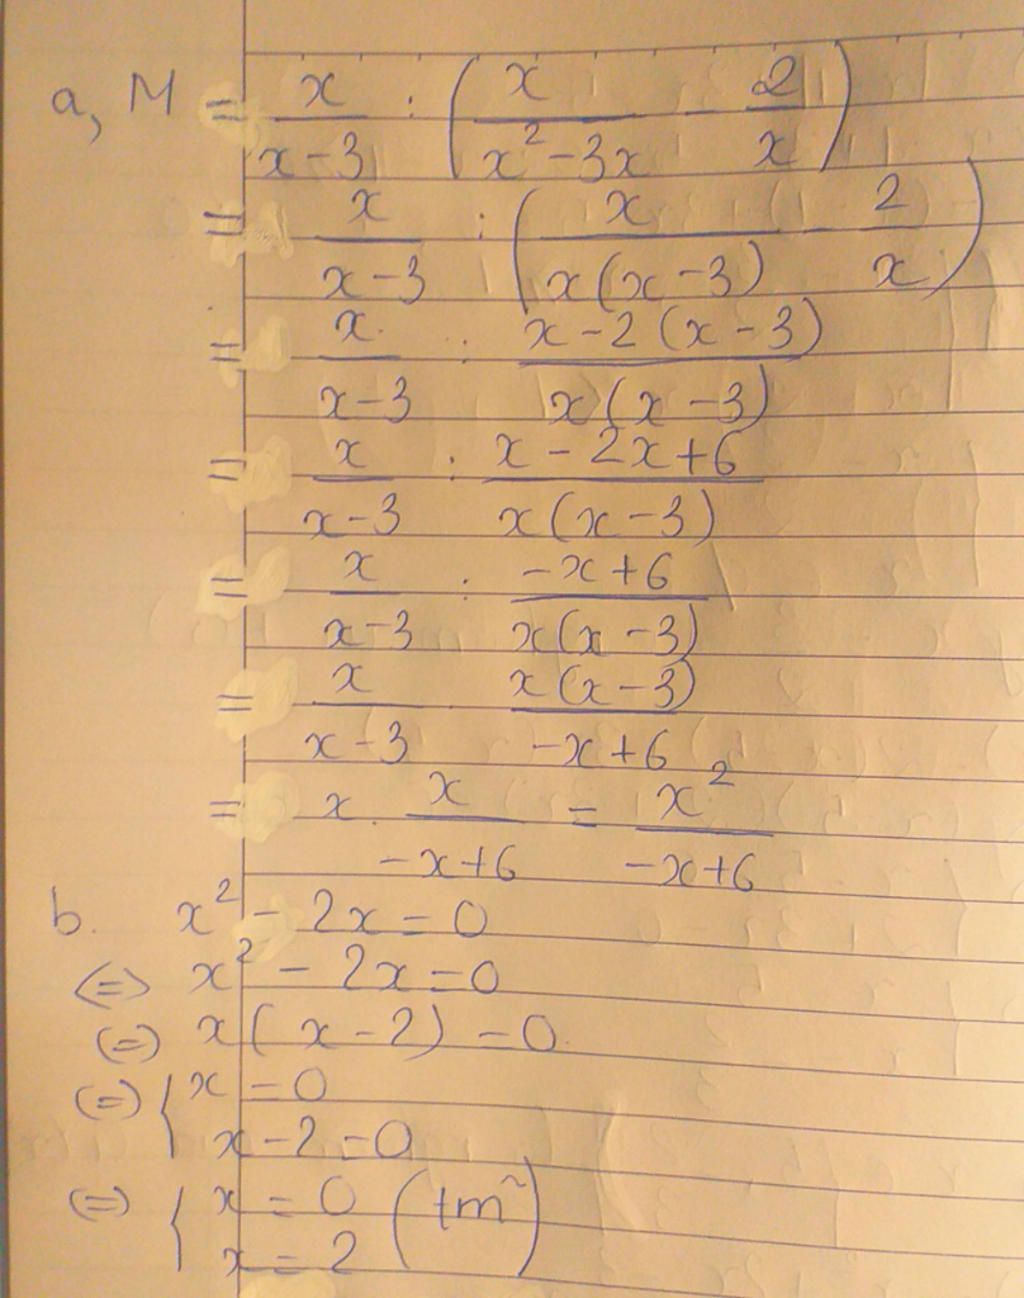 a, M = x/(x-3) : (x/(x²-3x) - 2/x)
= x/(x-3) : (x/(x(x-3)) - 2/x)
= x/(x-3) : (x-2(x-3))/(x(x-3))
= x/(x-3) : (x-2x+6)/(x(x-3))
= x/(x-3) : (-x+6)/(x(x-3))
= x/(x-3) . (x(x-3))/(-x+6)
= x . x/(-x+6) = x²/(-x+6)
b. x² - 2x = 0
(=) x² - 2x = 0
(=) x(x-2) = 0
(=) { x = 0
x-2 = 0
(=) { x = 0 (tm~)
x = 2